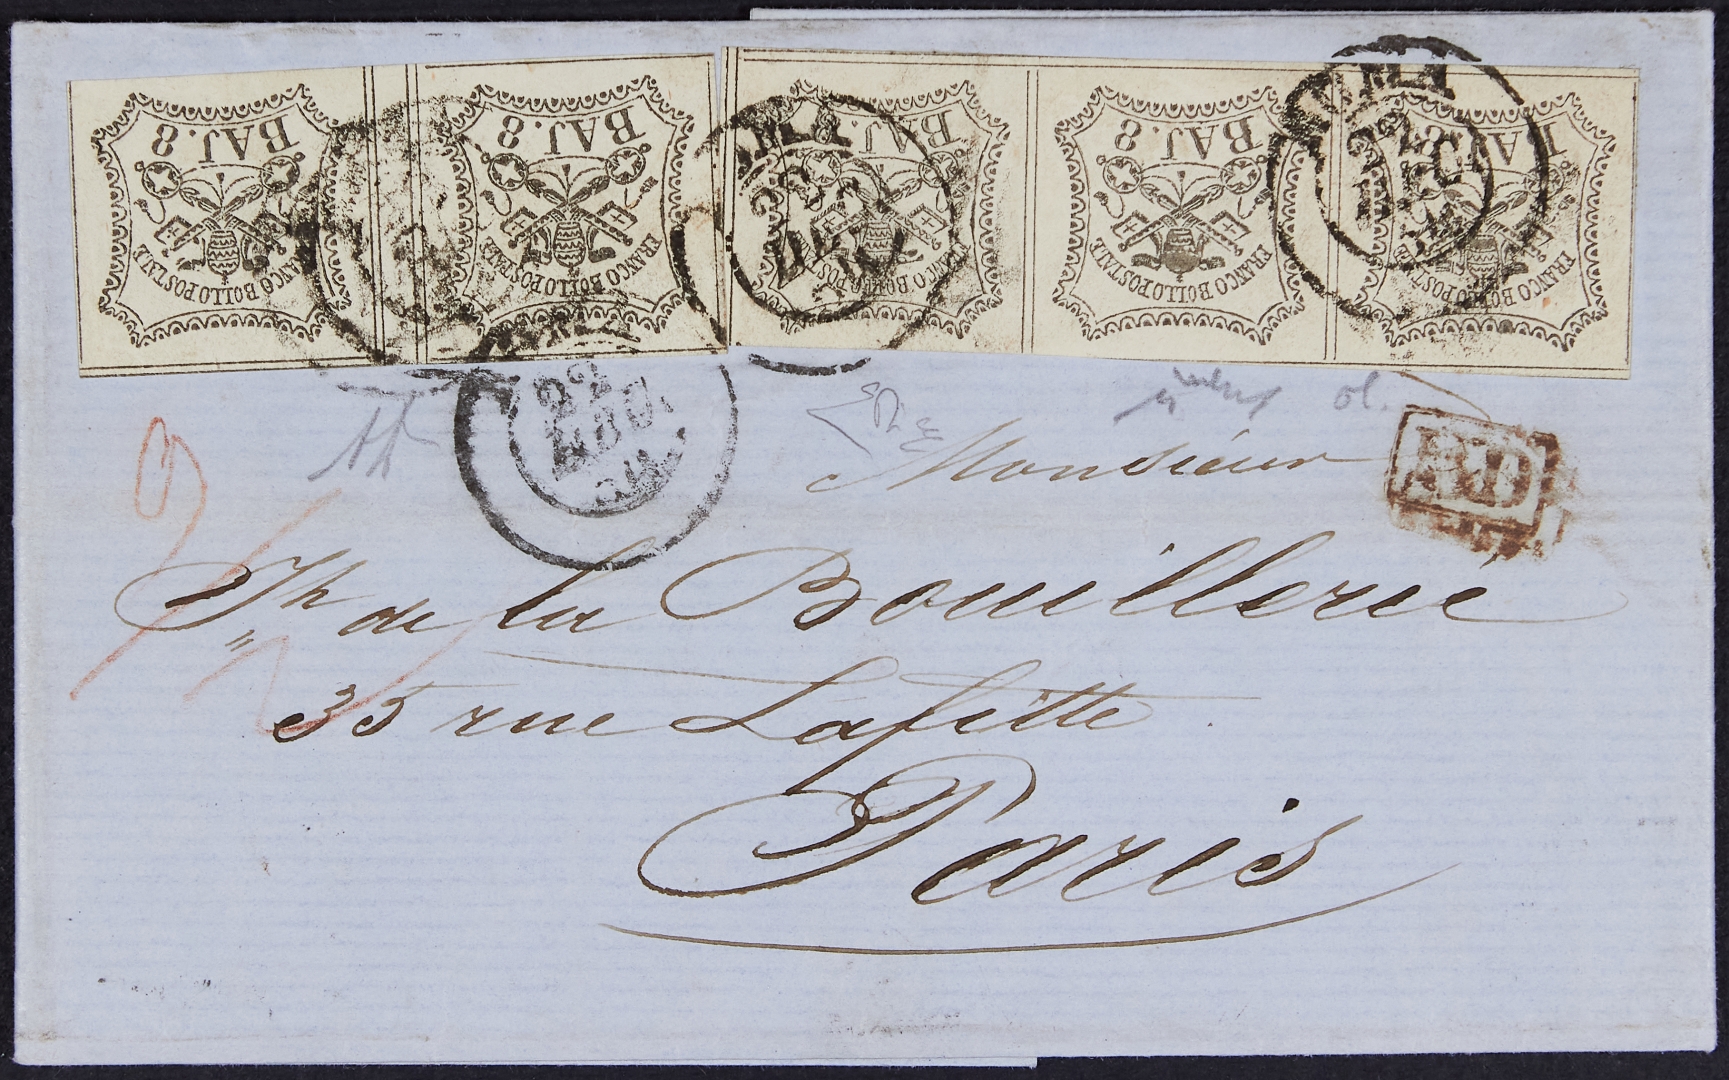 BAJ. 8
FRANCO BOLLO POSTALE
BAJ. 8
FRANCO BOLLO POSTALE
BAJ. 8
FRANCO BOLLO POSTALE
BAJ. 8
FRANCO BOLLO POSTALE
BAJ. 8
FRANCO BOLLO POSTALE
22
Monsieur
Jh de la Bouillerie
35 rue Lafitte
Paris